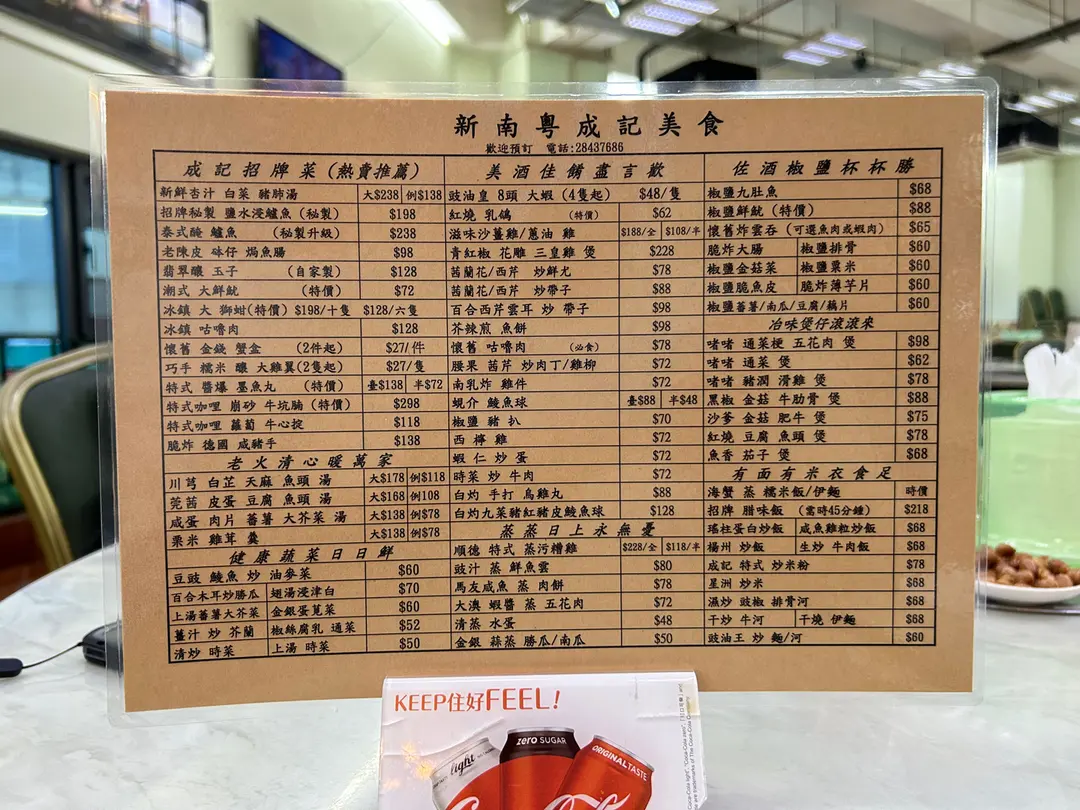 新南粵成記美食
歡迎預訂 電話:28437686
成記招牌菜(熱賣推薦)
新鮮杏汁 白菜 豬肺湯 大$238 例$138
招牌秘製 鹽水浸鱸魚 (秘製) $198
泰式醃 鱸魚 (秘製升級) $238
老陳皮 砵仔 焗魚腸 $98
翡翠釀 玉子 (自家製) $128
潮式 大鮮魷 (特價) $72
冰鎮 大 獅蚶(特價) $198/十隻 $128/六隻
冰鎮 咕嚕肉 $128
懷舊 金錢 蟹盒 (2件起) $27/件
巧手 糯米 釀 大雞翼(2隻起) $27/隻
特式 醬爆 墨魚丸 (特價) 壹$138 半$72
特式咖哩 崩砂 牛坑腩 (特價) $298
特式咖哩 蘿蔔 牛心掟 $118
脆炸 德國 咸豬手 $138
老火清心暖萬家
川芎 白芷 天麻 魚頭 湯 大$178 例$118
莞茜 皮蛋 豆腐 魚頭 湯 大$168 例108
咸蛋 肉片 蕃薯 大芥菜 湯 大$138 例$78
粟米 雞茸 羹 大$138 例$78
健康蔬菜日日鮮
豆豉 鯪魚 炒 油麥菜 $60
百合木耳炒勝瓜 翅湯浸津白 $70
上湯蕃薯大芥菜 金銀蛋莧菜 $60
薑汁 炒 芥蘭 椒絲腐乳 通菜 $52
清炒 時菜 上湯 時菜 $50
美酒佳餚盡言歡
豉油皇 8頭 大蝦 (4隻起) $48/隻
紅燒 乳鴿 (特價) $62
滋味沙薑雞/蔥油 雞 $188/全 $108/半
青紅椒 花雕 三皇雞 煲 $228
茜蘭花/西芹 炒鮮尤 $78
茜蘭花/西芹 炒帶子 $88
百合西芹雲耳 炒 帶子 $98
芥辣煎 魚餅 $98
懷舊 咕嚕肉 (必食) $78
腰果 茜芹 炒肉丁/雞柳 $72
南乳炸 雞件 $72
蜆介 鯪魚球 壹$88 半$48
椒鹽 豬 扒 $70
西 檸 雞 $72
蝦 仁 炒 蛋 $72
時菜 炒 牛肉 $72
白灼 手打 烏雞丸 $88
白灼九菜豬紅豬皮鯪魚球 $128
蒸蒸日上永無憂
順德 特式 蒸污糟雞 $228/全 $118/半
豉汁 蒸 鮮魚雲 $80
馬友咸魚 蒸 肉餅 $78
大澳 蝦醬 蒸 五花肉 $72
清蒸 水蛋 $48
金銀 蒜蒸 勝瓜/南瓜 $50
佐酒椒鹽杯杯勝
椒鹽九肚魚 $68
椒鹽鮮魷 (特價) $88
懷舊炸雲吞 (可選魚肉或蝦肉) $65
脆炸大腸 椒鹽排骨 $60
椒鹽金菇菜 椒鹽粟米 $60
椒鹽脆魚皮 脆炸薄芋片 $60
椒鹽蕃薯/南瓜/豆腐/藕片 $60
冶味煲仔滾滾來
啫啫 通菜梗 五花肉 煲 $98
啫啫 通菜 煲 $62
啫啫 豬潤 滑雞 煲 $78
黑椒 金菇 牛肋骨 煲 $88
沙爹 金菇 肥牛 煲 $75
紅燒 豆腐 魚頭 煲 $78
魚香 茄子 煲 $68
有面有米衣食足
海蟹 蒸 糯米飯/伊麵 時價
招牌 腊味飯 (需時45分鐘) $218
瑤柱蛋白炒飯 咸魚雞粒炒飯 $68
楊州 炒飯 生炒 牛肉飯 $68
成記 特式 炒米粉 $78
星洲 炒米 $68
濕炒 豉椒 排骨河 $68
干炒 牛河 干燒 伊麵 $68
豉油王 炒 麵/河 $60
KEEP住好FEEL!
light
zero SUGAR
ORIGINAL TASTE